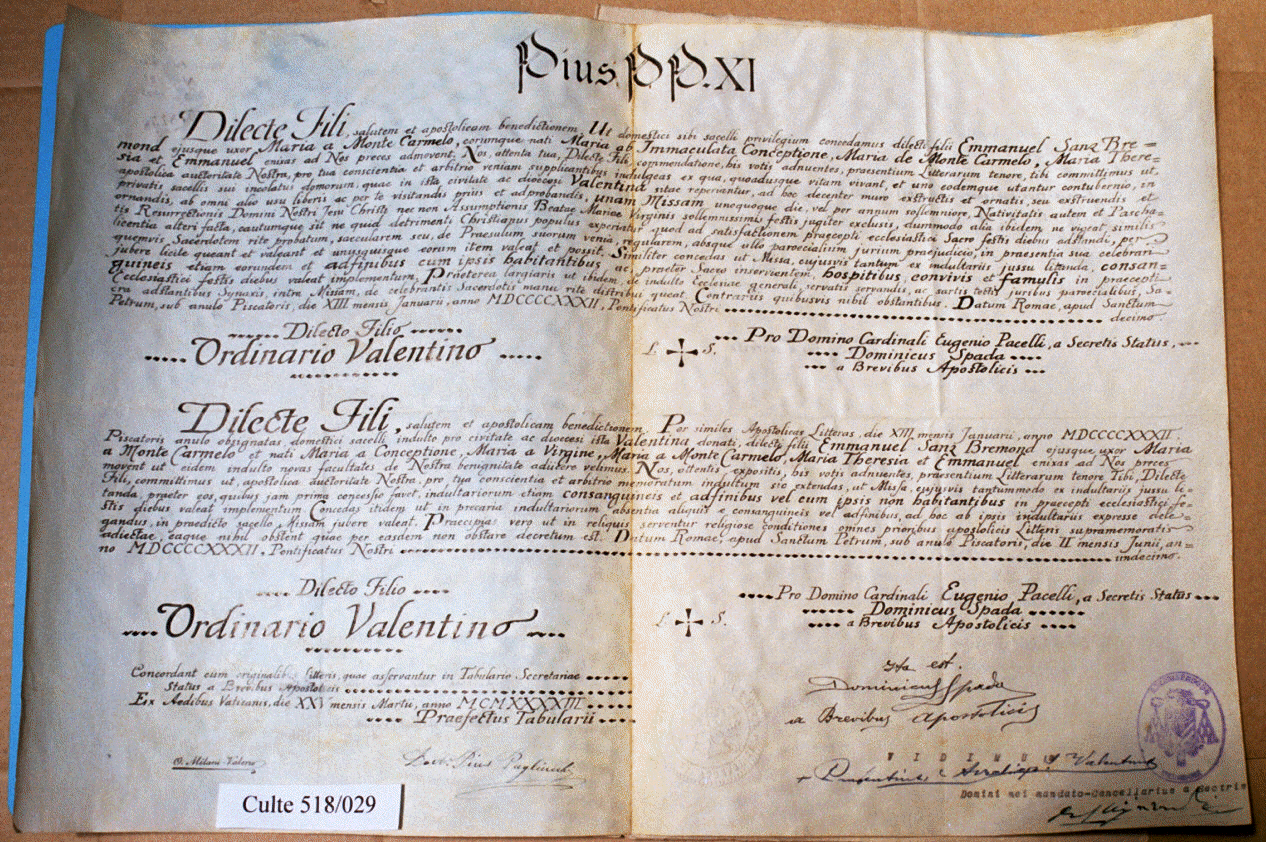 Pius PP. XI
Dilecte Fili, salutem et apostolicam benedictionem. Ut domestici sibi sacelli privilegium concedamus dilecti filii Emmanuel Sanz Bre=
mond ejusque uxor Maria a Monte Carmelo, eorumque nati Maria ab Immaculata Conceptione, Maria de Monte Carmelo, Maria There=
sia et Emmanuel enixas ad Nos preces admovent. Nos, attenta tua, Dilecte Fili, commendatione, his votis adnuentes, praesentium Litterarum tenore, tibi committimus ut,
apostolica auctoritate Nostra, pro tua conscientia et arbitrio veniam supplicantibus indulgeas ex qua, quadusque vitam vivant, et uno eodemque utantur contubernio, in
privatis sacellis sui incolatus domorum, quae in ista civitate ac dioecesi Valentina sitae reperiantur, ad hoc decenter muro exstructis et ornatis, seu exstruendis et
ornandis, ab omni alio usu liberis ac per te visitandis prius et adprobandis, unam Missam unoquoque die, vel per annum sollemniore, Nativitatis autem et Pascha=
tis Resurrectionis Domini Nostri Jesu Christi nec non Assumptionis Beatae Mariae Virginis sollemnissimis festis jugiter exclusis, dummodo alia ibidem ne vigeat similis
licentia alteri facta, cautumque sit ne quid detrimenti Christianus populus experiatur quod ad satisfationem praecepti ecclesiastici Sacro festis diebus adstandi, per
quemvis Sacerdotem rite probatum, saecularem seu, de Praesulum suorum venia, regularem, absque ullo paroecialium jurum praejudicio, in praesentia sua celebrari
jubere licite queant et valeant et unusquisque eorum item valeat et possit. Similiter concedas ut Missa, cujusvis tantum ex indultariis jussu litanda, consan=
guineis etiam eorundem et adfinibus cum ipsis habitantibus, ac, praeter Sacro inservientem, hospitibus, convivis et famulis in praecepti
ecclesiastici festis diebus valeat implementum. Praeterea largiaris ut ibidem, de indulto Ecclesiae generali, servatis servandis, ac sartis tectis juribus paroecialibus, Sa=
cra adstantibus Synaxis, intra Missam, de celebrantis Sacerdotis manu rite distribui queat. Contrariis quibusvis nihil obstantibus. Datum Romae, apud Sanctum
Petrum, sub anulo Piscatoris, die XIII mensis Januarii, anno MDCCCCXXXII, Pontificatus Nostri
decimo.
Dilecto Filio
Ordinario Valentino
L. S.
Pro Domino Cardinali Eugenio Pacelli, a Secretis Status,
Dominicus Spada
a Brevibus Apostolicis
Dilecte Fili, salutem et apostolicam benedictionem. Per similes Apostolicas Litteras, die XIII, mensis Januarii, anno MDCCCCXXXII.
Piscatoris anulo obsignatas, domestici sacelli indulto pro civitate ac dioecesi ista Valentina donati, dilecti filii Emmanuel Sanz Bremond ejusque uxor Maria
a Monte Carmelo et nati Maria a Conceptione, Maria a Virgine, Maria a Monte Carmelo, Maria Theresia et Emmanuel enixas ad Nos preces
movent ut eidem indulto novas facultates de Nostra benignitate adiicere velimus. Nos, attentis expositis, his votis adnuentes, praesentium Litterarum tenore Tibi, Dilecte
Fili, committimus ut, apostolica auctoritate Nostra, pro tua conscientia et arbitrio memoratum indultum sic extendas, ut Missa, cujusvis tantummodo ex indultariis jussu li=
tanda, praeter eos, quibus jam prima concessio favet, indultariorum etiam consanguineis et adfinibus vel cum ipsis non habitantibus in praecepti ecclesiastici fe=
stis diebus valeat implementum. Concedas itidem ut in precaria indultariorum absentia aliquis e consanguineis vel adfinibus, ad hoc ab ipsis indultariis expresse dele=
gandus, in praedicto sacello Missam jubere valeat. Praecipias vero ut in reliquis serventur religiose conditiones omnes prioribus apostolicis Litteris supramemoratis
adiectae, eaque nihil obstent quae per easdem non obstare decretum est. Datum Romae, apud Sanctum Petrum, sub anulo Piscatoris, die II mensis Junii, an=
no MDCCCCXXXII, Pontificatus Nostri
undecimo.
Dilecto Filio
Ordinario Valentino
L. S.
Pro Domino Cardinali Eugenio Pacelli, a Secretis Status
Dominicus Spada
a Brevibus Apostolicis
Concordant cum originalibus litteris, quae asservantur in Tabulario Secretariae
Status a Brevibus Apostolicis
Ex Aedibus Vaticanis, die XXV mensis Martii, anno MCMXXXIII.
Praefectus Tabularii
Ita est.
Dominicus Spada
a Brevibus Apostolicis
VIDIMUS
Domini mei mandato-Cancellarius a Secretis
Culte 518/029